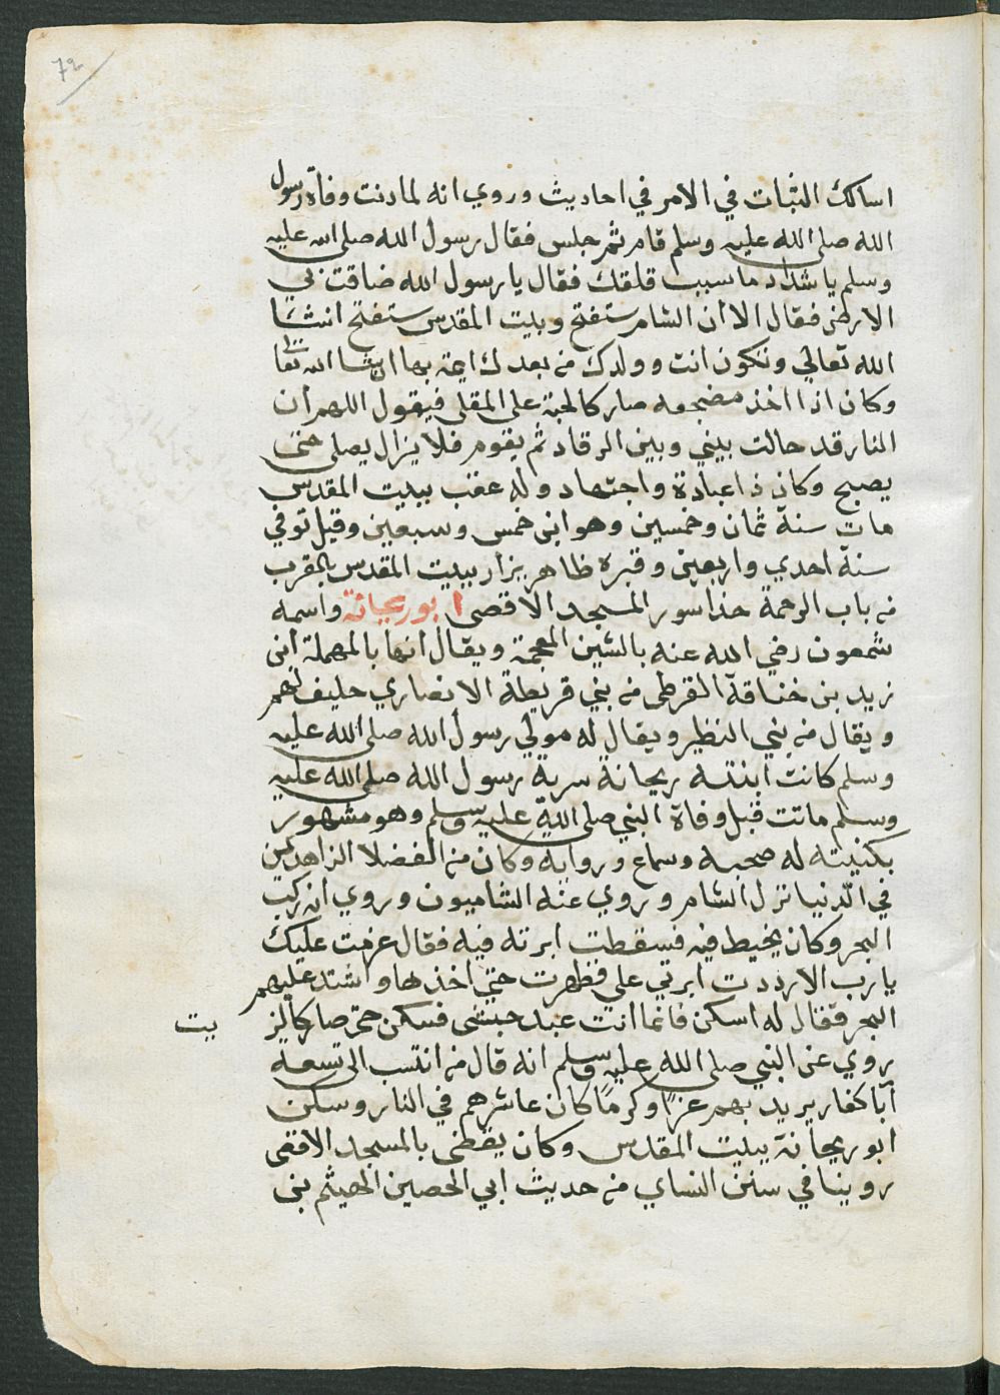 72
اسالك الثبات في الامر في احاديث وروي انه لما دنت وفاة رسول
الله صلى الله عليه وسلم قام ثم جلس فقال رسول الله صلى الله عليه
وسلم يا شداد ما سبب قلقك فقال يا رسول الله ضاقت بي
الارض فقال الا ان الشام ستفتح وبيت المقدس ستفتح انشا
الله تعالي وتكون انت وولدك من بعدك ايمة بها ان شا الله تعا
وكان اذا اخذ مضجعه صار كالحبة على المقلى فيقول اللهم ان
النار قد حالت بيني وبين الرقاد ثم يقوم فلا يزال يصلى حتى
يصبح وكان ذا عبادة واجتهاد وله عقب ببيت المقدس
مات سنة ثمان وخمسين وهو ابن خمس وسبعين وقيل توفي
سنة احدي واربعين وقبره ظاهر يزار ببيت المقدس بالقرب
من باب الرحمة حذا سور المسجد الاقصى ابو ريحانة واسمه
شمعون رضي الله عنه بالشين المعجمة ويقال انها بالمهملة ابن
زيد بن خناقة القرظى من بني قريظة الانصاري حليف لهم
ويقال من بني النظير ويقال له مولي رسول الله صلى الله عليه
وسلم كانت ابنته ريحانة سرية رسول الله صلى الله عليه
وسلم ماتت قبل وفاة النبي صلى الله عليه وسلم وهو مشهور
بكنيته له صحبه وسماع وروايه وكان من الفضلا الزاهدين
في الدنيا نزل الشام وروي عنه الشاميون وروي انه ركب
البحر وكان يخيط فيه فسقطت ابرته فيه فقال عزمت عليك
يا رب الا رددت ابرتي على فظهرت حتي اخذها واشتد عليهم
البحر فقال له اسكن فانما انت عبد حبشى فسكن حتى صار كالز
يت
روي عن النبي صلى الله عليه وسلم انه قال من انتسب الى تسعه
آبا كفار يريد بهم عزا وكرما كان عاشرهم في النار وسكن
ابو ريحانة ببيت المقدس وكان يقضى بالمسجد الاقصى
روينا في سنن النساي من حديث ابي الحصين الهيثم بن